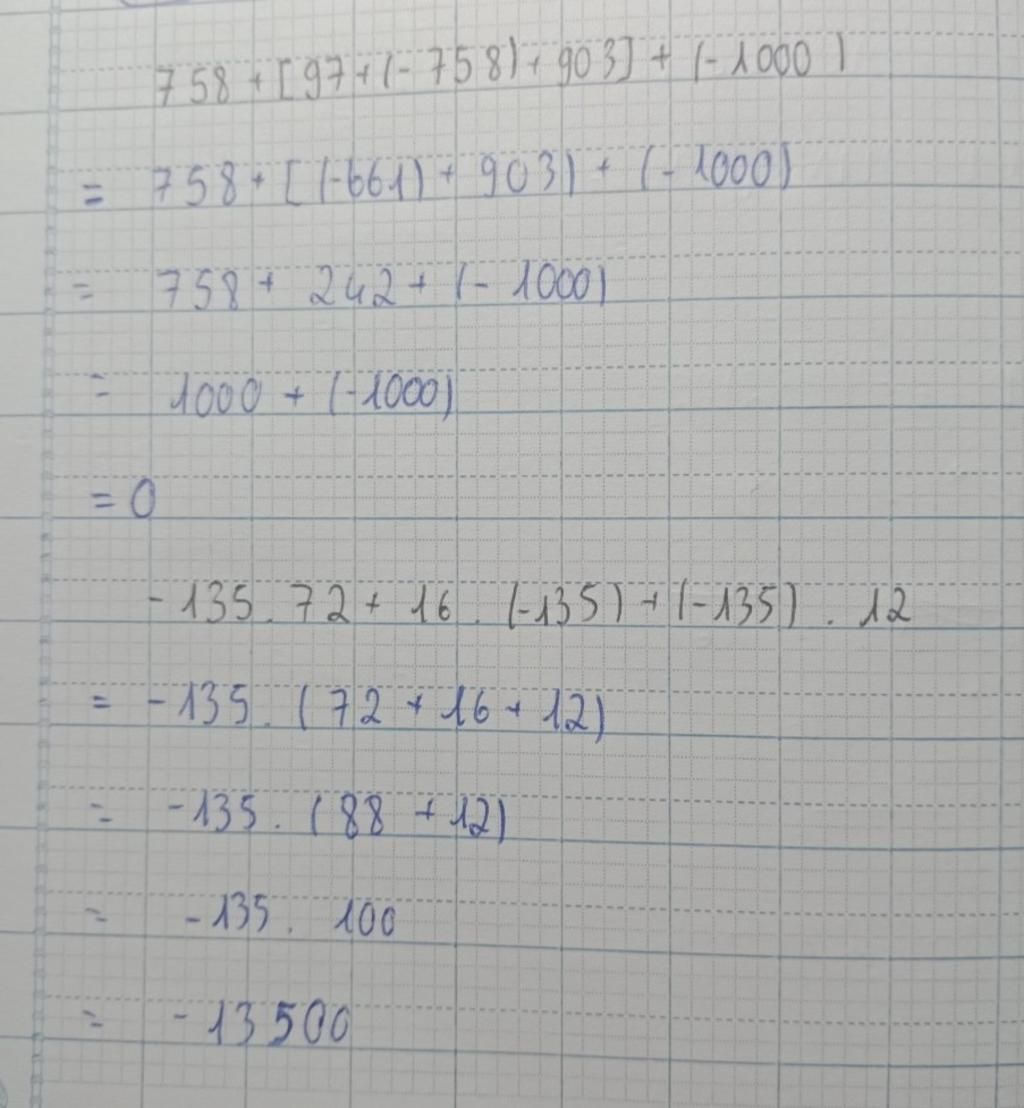 758 + [97 + (-758) + 903] + (-1000)
= 758 + [(-661) + 903) + (-1000)
= 758 + 242 + (-1000)
= 1000 + (-1000)
= 0
-135 . 72 + 16 . (-135) + (-135) . 12
= -135 . (72 + 16 + 12)
= -135 . (88 + 12)
= -135 . 100
= -13500